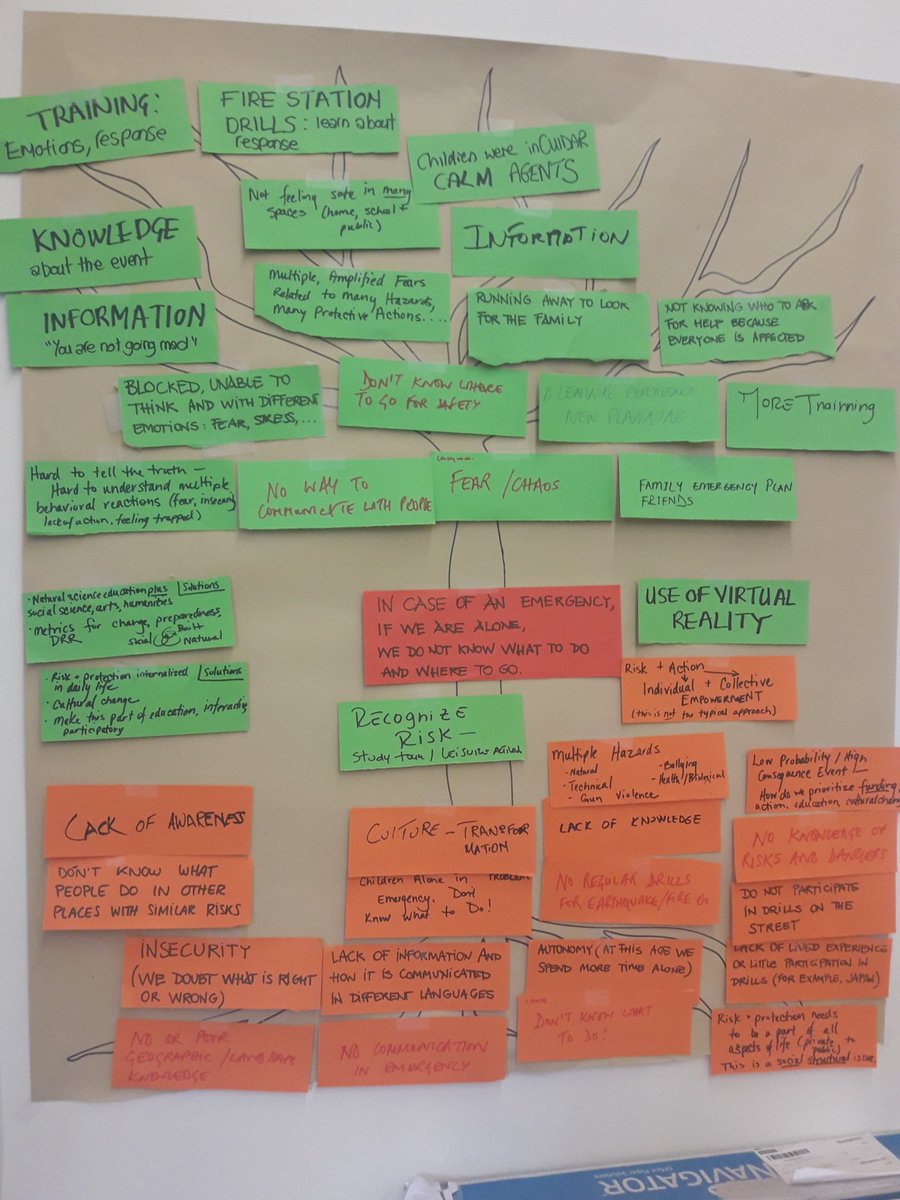 TRAINING:
Emotions, response
FIRE STATION
DRILLS: learn about
response
Children were in CUIDAR
CALM AGENTS
Not feeling safe in many
spaces (home, school +
public)
KNOWLEDGE
about the event
INFORMATION
Multiple, Amplified Fears
Related to Many Hazards,
Many Protective Actions....
INFORMATION
"You are not going mad"
RUNNING AWAY TO LOOK
FOR THE FAMILY
NOT KNOWING WHO TO ASK
FOR HELP BECAUSE
EVERYONE IS AFFECTED
BLOCKED, UNABLE TO
THINK AND WITH DIFFERENT
EMOTIONS: FEAR, STRESS,...
DON'T KNOW WHERE
TO GO FOR SAFETY
A LEARNING EXPERIENCE
NEW PLANNING
MORE Trainning
Hard to tell the truth —
Hard to understand multiple
behavioral reactions (fear, insecurity
lack of action, feeling trapped)
NO WAY TO
COMMUNICATE WITH PEOPLE
FEAR / CHAOS
FAMILY EMERGENCY PLAN
FRIENDS
· Natural science education plus | Solutions
social science, arts, humanities
· Metrics for change, preparedness,
DRR
Social
Built
Natural
IN CASE OF AN EMERGENCY,
IF WE ARE ALONE,
WE DO NOT KNOW WHAT TO DO
AND WHERE TO GO.
USE OF VIRTUAL
REALITY
· Risk + protection internalized | Solutions
in daily life
· Cultural change
· Make this part of education, interactive
participatory
Risk + Action
Individual + Collective
EMPOWERMENT
(this is not the typical approach)
RECOGNIZE
RISK —
STUDY tour / LEISURE
Multiple Hazards
- Natural
- Technical
- Gun Violence
- Bullying
- Health/Biological
Low Probability / High
Consequence Event
How do we prioritize funding,
action, education, cultural change
LACK OF AWARENESS
CULTURE - TRANSFOR
MATION
LACK OF KNOWLEDGE
NO KNOWLEDGE OF
RISKS AND DANGERS
DON'T KNOW WHAT
PEOPLE DO IN OTHER
PLACES WITH SIMILAR RISKS
PROBLEM
Children Alone in
Emergency. Don't
Know What to Do!
NO REGULAR DRILLS
FOR EARTHQUAKE/FIRE
DO NOT PARTICIPATE
IN DRILLS ON THE
STREET
INSECURITY
(WE DOUBT WHAT IS RIGHT
OR WRONG)
LACK OF INFORMATION AND
HOW IT IS COMMUNICATED
IN DIFFERENT LANGUAGES
AUTONOMY (AT THIS AGE WE
SPEND MORE TIME ALONE)
LACK OF LIVED EXPERIENCE
OR LITTLE PARTICIPATION IN
DRILLS (FOR EXAMPLE, JAPAN)
NO OR POOR
GEOGRAPHIC/LANDSCAPE
KNOWLEDGE
NO COMMUNICATION
IN EMERGENCY
DON'T KNOW WHAT
TO DO!
Risk + protection needs
to be a part of all
aspects of life (private to
public)
This is a social structural issue.
NAVIGATOR
Office Paper Solutions